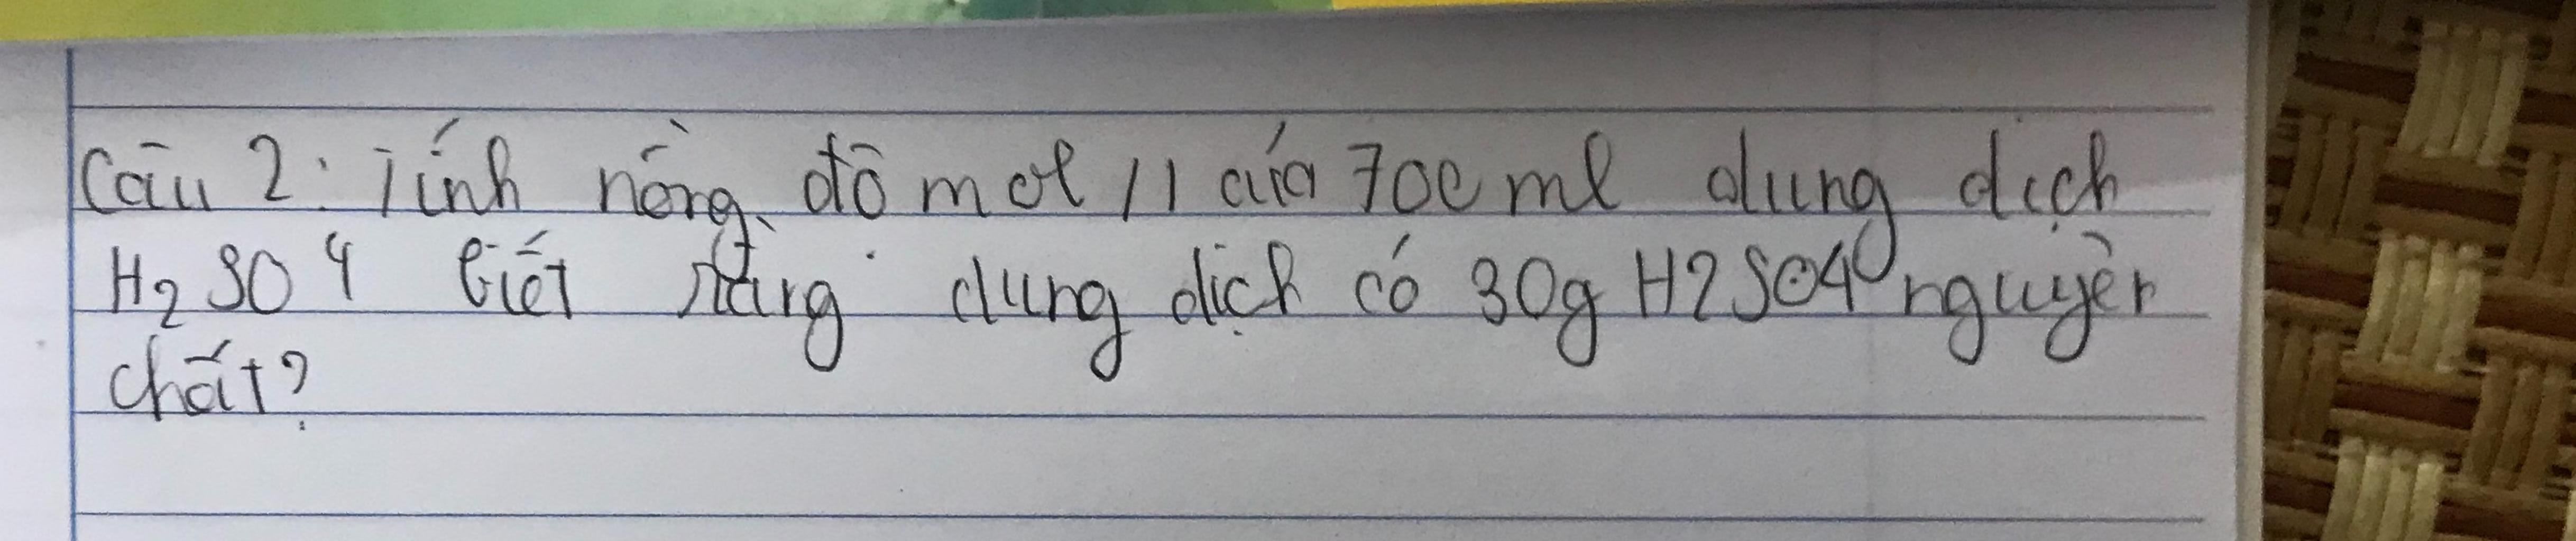 Câu 2: Tính nồng độ mol /l của 700 ml dung dịch
H2SO4 biết rằng dung dịch có 30g H2SO4 nguyên
chất?